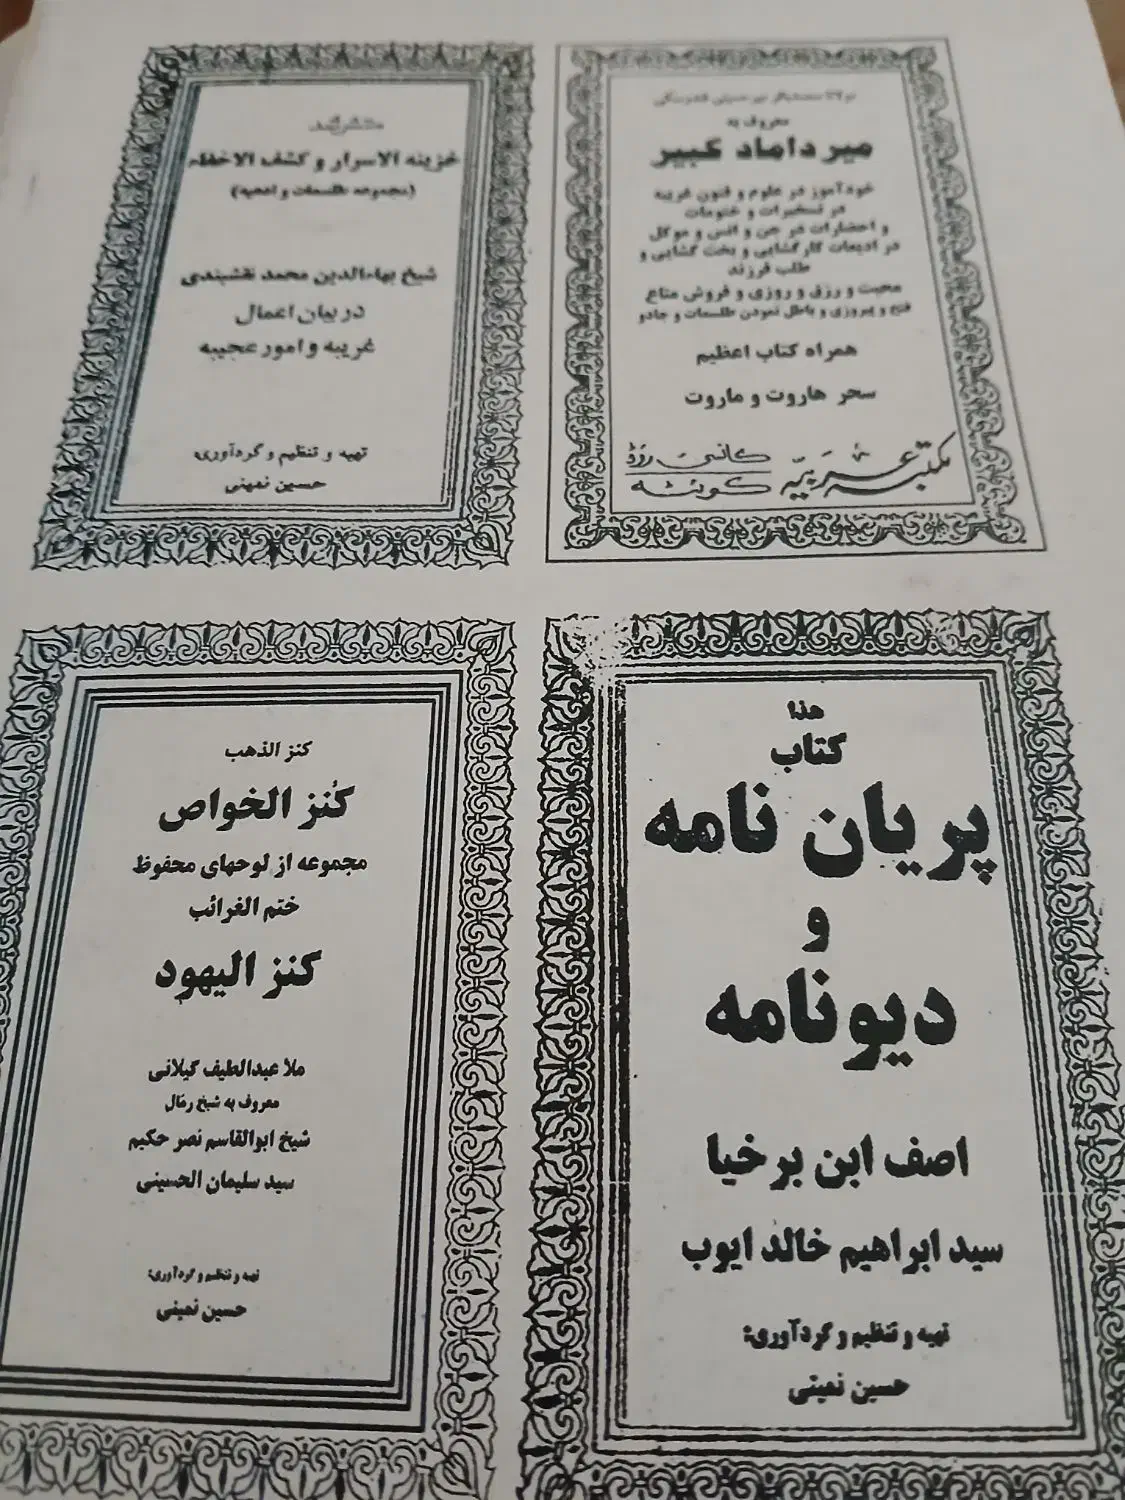 معروف به
میر داماد کبیر
خودآموز در علوم و فنون غریبه
در تسخیرات و ختومات
و احضارات در جن و انس و موکل
در ادیعات کارگشایی و بخت گشایی و
طلب فرزند
محبت و رزق و روزی و فروش متاع
فتح و پیروزی و باطل نمودن طلسمات و جادو
همراه کتاب اعظیم
سحر هاروت و ماروت
مکتبہ عربیہ
کانسی روڈ
کوئٹہ
خزینه الاسرار و کشف الاخفاء
(مجموعه طلسمات و ادعیه)
شیخ بهاءالدین محمد نقشبندی
در بیان اعمال
غریبه و امور عجیبه
تهیه و تنظیم و گردآوری:
حسین نمینی
هذا
کتاب
پریان نامه
و
دیونامه
اصف ابن برخیا
سید ابراهیم خالد ایوب
تهیه و تنظیم و گردآوری:
حسین نمینی
کنز الذهب
کنز الخواص
مجموعه از لوحهای محفوظ
ختم الغرائب
کنز الیهود
ملا عبدالطیف گیلانی
معروف به شیخ رمّال
شیخ ابوالقاسم نصر حکیم
سید سلیمان الحسینی
تهیه و تنظیم و گردآوری:
حسین نمینی